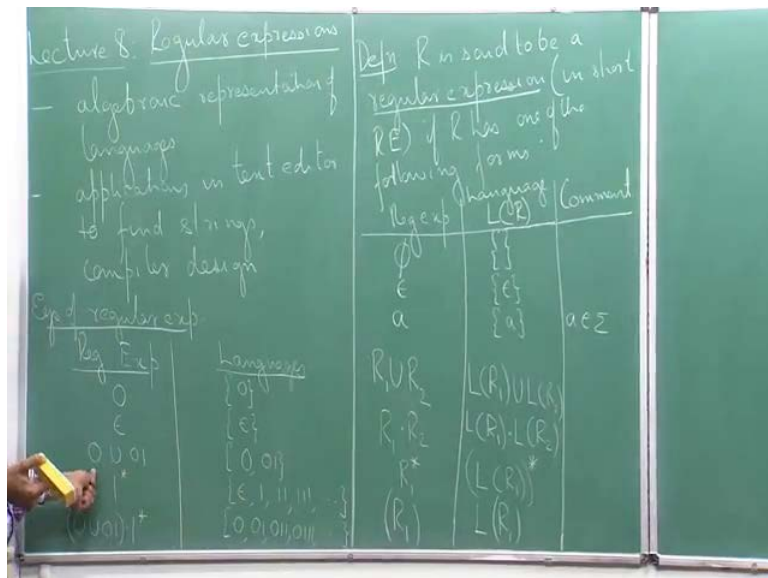 Lecture 8: Regular expressions
- algebraic representation of
languages
- applications in text editor
to find strings,
compiler design
Egs of regular exp.
Reg Exp Languages
0 {0}
ϵ {ϵ}
0 ∪ 01 {0, 01}
1* {ϵ, 1, 11, 111, ...}
(0 ∪ 01)·1* {0, 01, 011, 0111, }
Defn R is said to be a
regular expression (in short
RE) if R has one of the
following forms.
Reg exp Language L(R) Comment
ϕ {}
ϵ {ϵ}
a {a} a ∈ Σ
R₁ ∪ R₂ L(R₁) ∪ L(R₂)
R₁ · R₂ L(R₁) · L(R₂)
R₁* (L(R₁))*
(R₁) L(R₁)